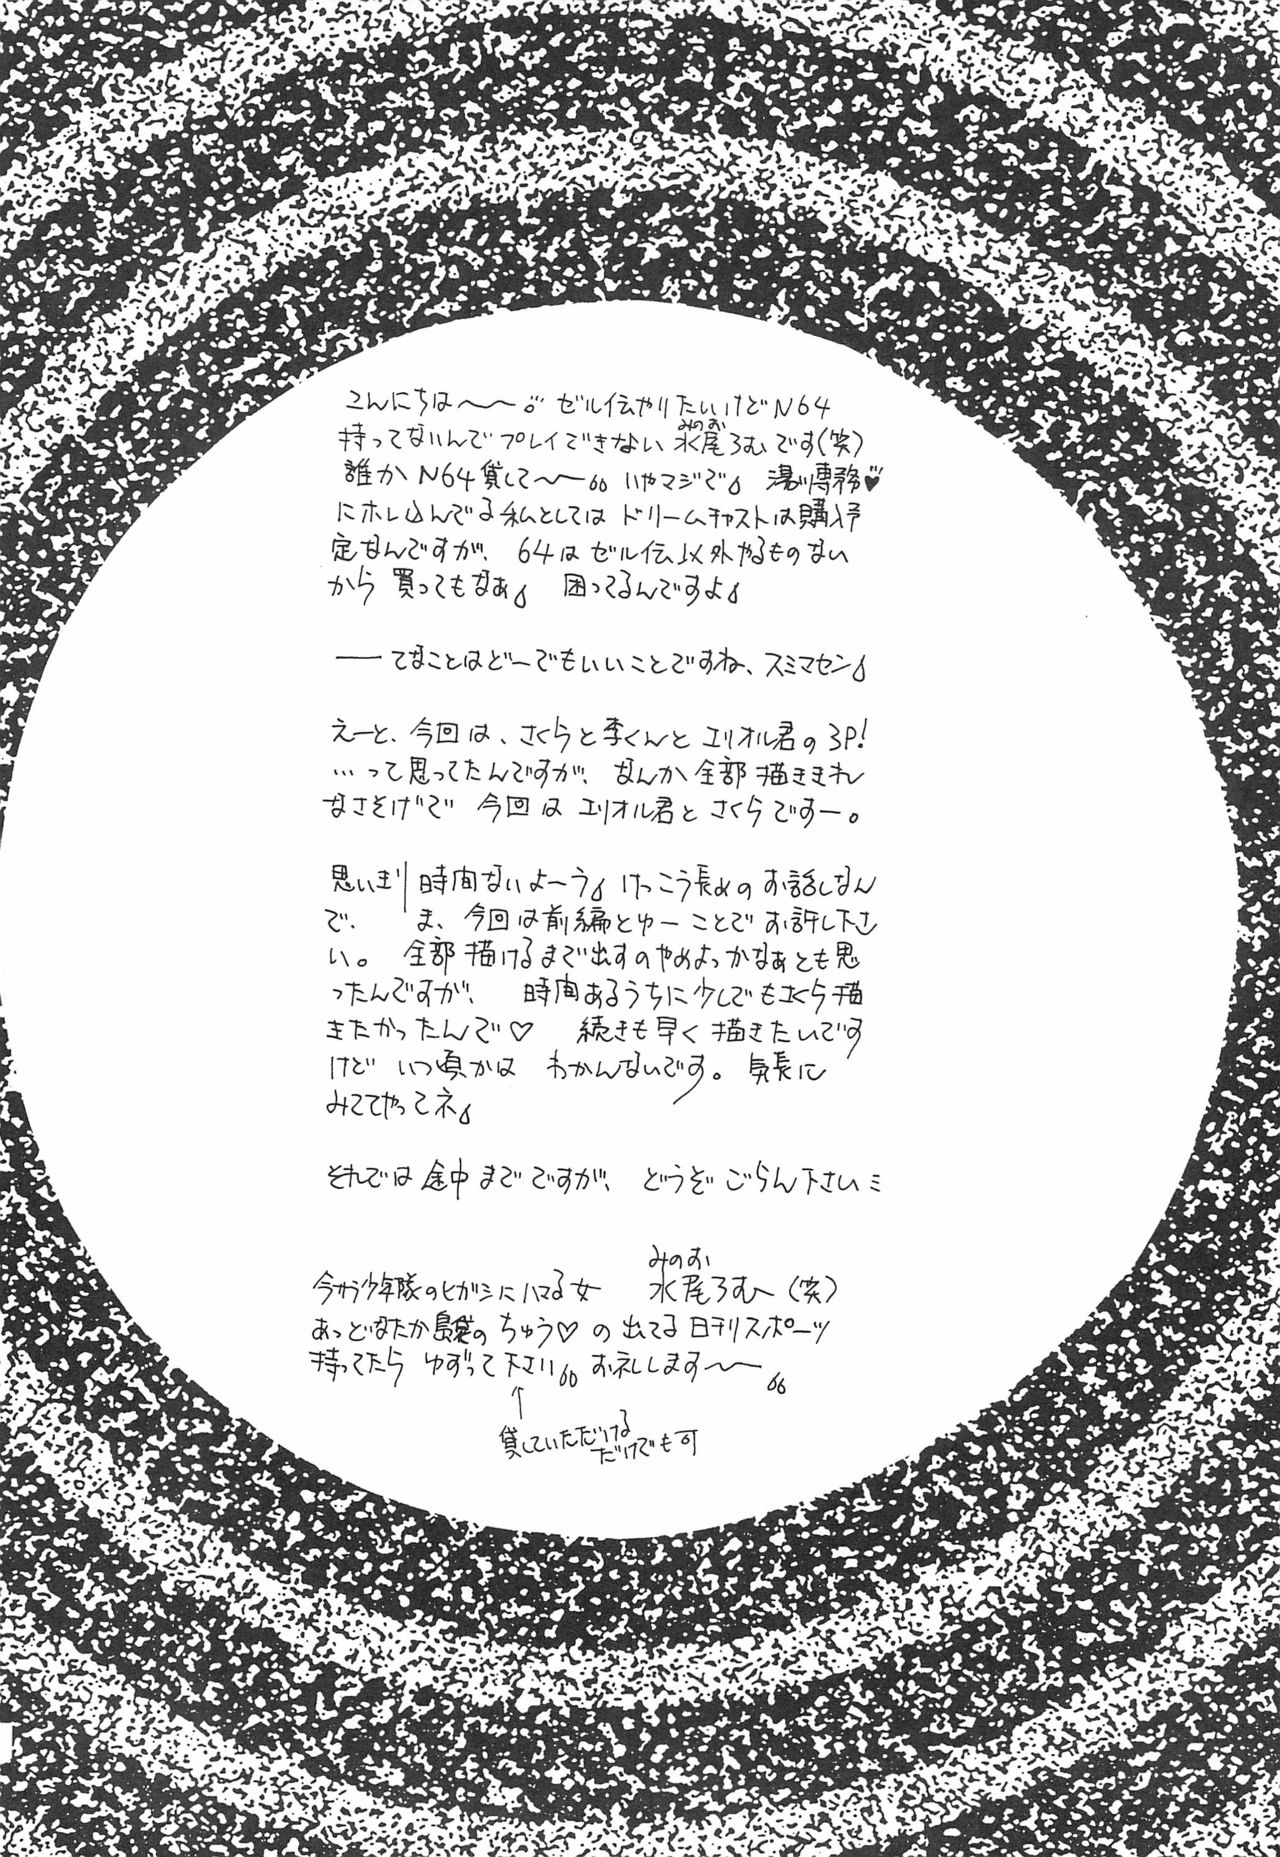 こんにちは〜〜。ゼル伝やりたいけどN64
持ってないんでプレイできない水尾ろむです(笑)
みのお
誰かN64貸して〜〜。。いやマジで。湯川専務♥
にホレ込んでる私としてはドリームキャストは購入予
定なんですが、64はゼル伝以外やるものない
から買ってもなぁ。困ってるんですよ。
――てなことはどーでもいいことですね、スミマセン。
えーと、今回は、さくらと李くんとエリオル君の3P!
…って思ってたんですが、なんか全部描ききれ
なさそげで今回はエリオル君とさくらですー。
思いきり時間ないよーう。けっこう長めのお話しなん
で、ま、今回は前編とゆーことでお許し下さ
い。全部描けるまで出すのやめよっかなぁとも思
ったんですが、時間あるうちに少しでもさくら描
きたかったんで♡続きも早く描きたいです
けどいつ頃かはわかんないです。気長に
みててやってネ。
それでは途中までですが、どうぞごらん下さいミ
みのお
今から少年隊のヒガシにハマる女 水尾ろむへ(笑)
あっどなたか島袋のちゅう♡の出てる日刊スポーツ
持ってたらゆずって下さい。。お礼します〜〜。。
↑
貸していただける
だけでも可